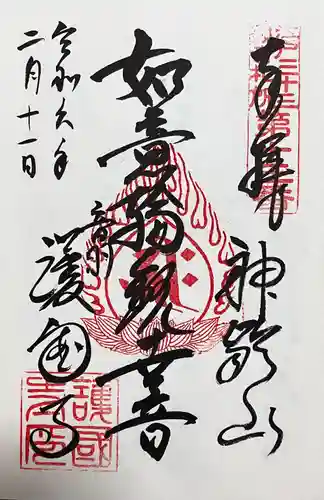 奉拝
神齢山
如意輪観世音
護国寺
令和六年
二月十一日
護國